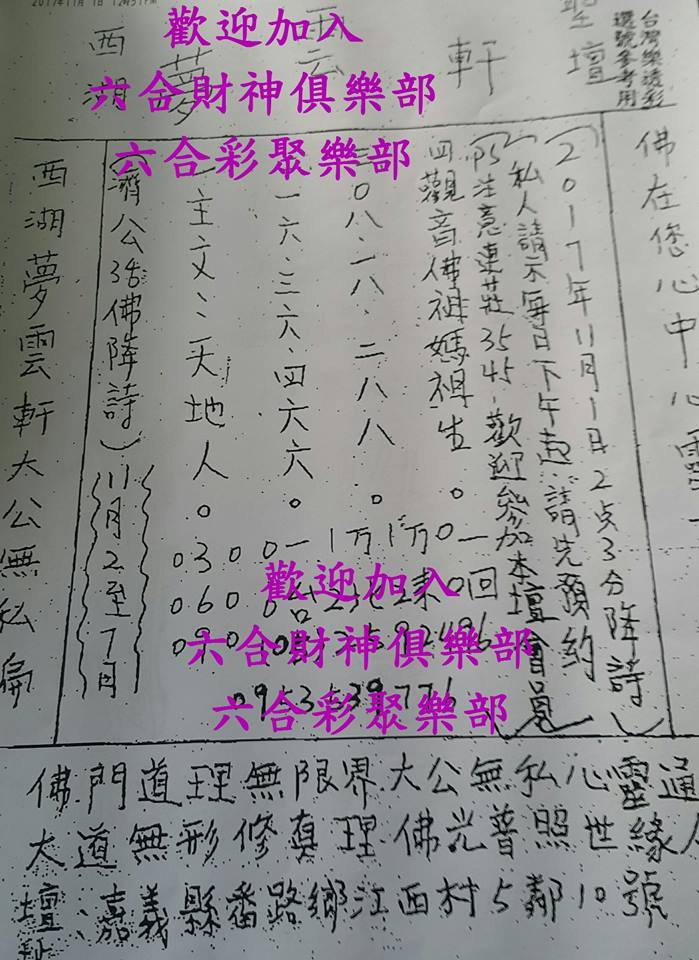 2017年11月1日
歡迎加入
六合財神俱樂部
六合彩聚樂部
台灣樂透彩
選號參考用
西湖夢雲軒
聖壇
佛在您心中心靈
(2017年11月1日2点3分降詩)
(私人請示每日下午起請先預約)
(PS注意連莊35 45-歡迎參加本壇會員)
四觀音佛祖媽祖生。
0八.一八.二八八。
一六.三六.四六六。
一主文:天地人。
(濟公活佛降詩)
11月2至7日
西湖夢雲軒大公無私扁
歡迎加入
六合財神俱樂部
六合彩聚樂部
佛門道理無限界大公無私心靈通
大道無形修真理佛光普照世緣人
壇址:嘉義縣番路鄉江西村5鄰10號